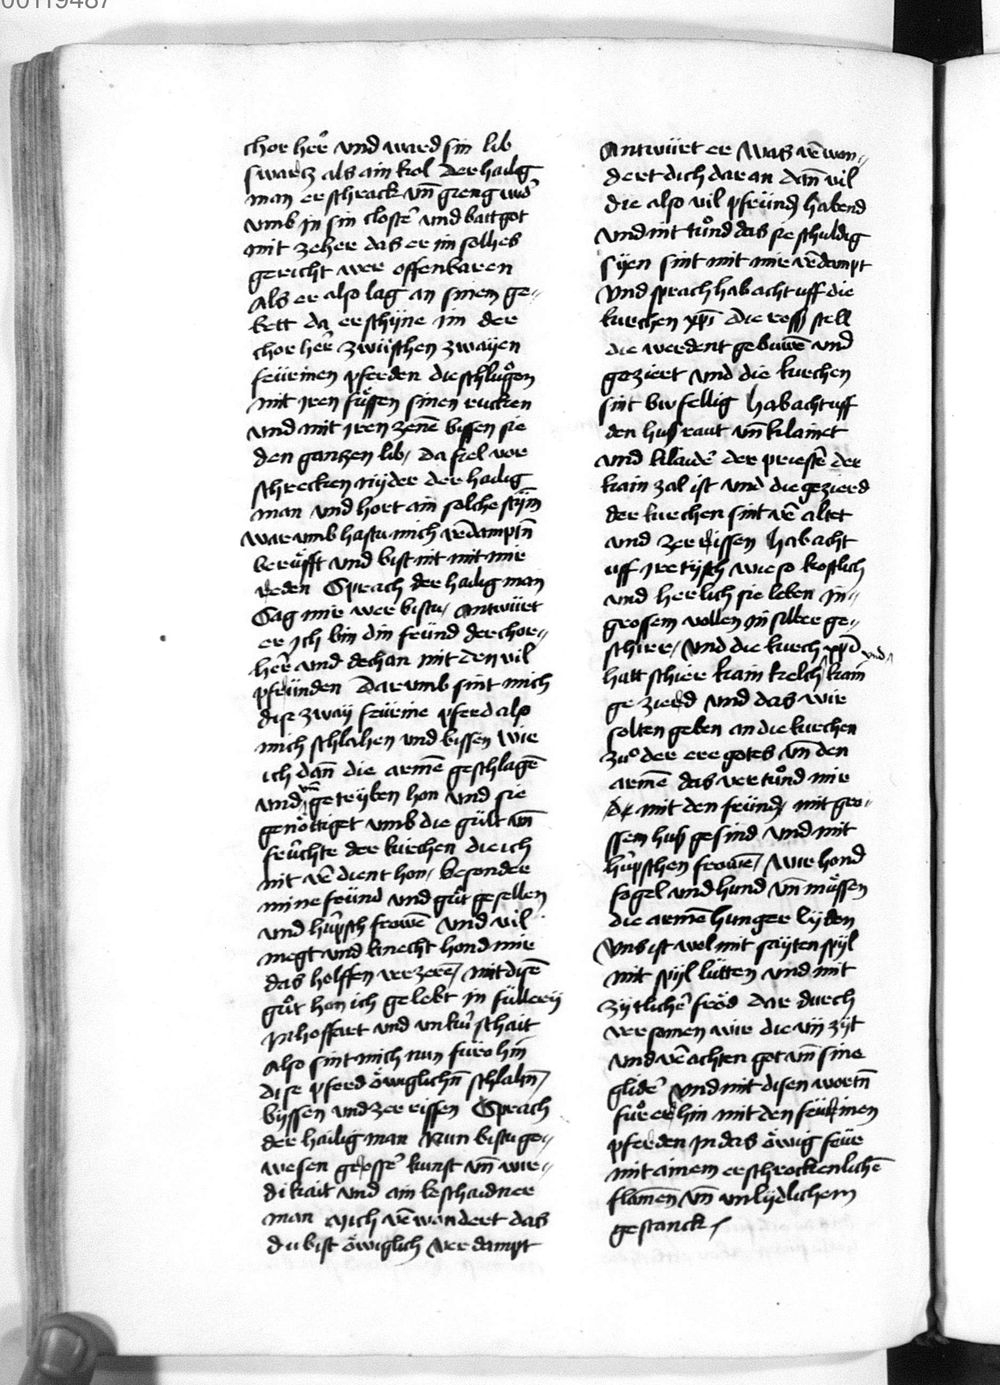 00119487
chor her̄ vnd ward sin lib
swartz als ain kol Der hailig
man erschrack vn̄ gieng wid̄
vmb jn sin closter̄ vnd batt got
mit zeher das er im solhes
gericht wer offenbaren
Als er also lag an sinem ge-
bett da erschÿne im der
chor her̄ zwüschen zwaÿen
feürinen pferden die schlugen
mit jren füssen sinen rucken
vnd mit jren zene bissen sie
den ganzen lib / da fiel vor
schrecken nÿder der hailig
man vnd hort ain solche stÿm̄
war vmb hastu mich v̄dampten̄
berüfft vnd bist nit mit mir
reden Sprach der hailig man
Sag mir wer bistu / Antwürt
er Ich bin din feünd der chor-
her̄ vnd dechan mit den vil
pfreünden Dar vmb sint mich
dise zwaÿ feürine pferd also
mich schlahen vnd bissen Wie
ich dan̄ die arme̅ geschlage̅
vnd vn̄ getrÿben hon vnd sie
genöttiget vmb die gült vn̄
früchte der kirchen die ich
nit v̄dient hon / besonder
mine feünd vnd gůt gesellen
vnd hüpsch frowe̅ vnd vil
megt vnd knecht hond mir
das helffen verzere̅ / mit dise̅
gůt hon ich gelebt in füllerÿ
in hoffart vnd vnkünschait
Also sint mich nun füro hin
dise pferd öwiglichn̄ schlahn̄ /
bÿssen vnd zer rissen Sprach
der hailig man Nun bistu ge-
wesen grosser̄ kunst vn̄ wir-
dikait vnd ain beschaidner
man Mich v̄wondert das
du bist öwiglich verdampt
Antwürt er Was v̄won-
dert dich dar an dan̄ vil
die also vil pfreünd habend
vnd nit tůnd das sie schuldig
sÿen sint mit mir v̄dampt
Vnd sprach hab acht uff die
kirchen xp̄i Die ross stell
die werdent gebuwe̅ vnd
geziert vnd die kirchen
sint buwfellig Hab acht uff
den huss raut vn̄ klainet
vnd klaider̄ der priester̄ der
kain zal ist vnd die gezierd
der kirchen sint v̄altet
vnd zerrissen Hab acht
uff jre tÿsch wie so kostlich
vnd herlich sie leben in
grossem vollen in silber ge-
schirr / vnd die kirch xp̄i
hatt schier kain kelch vnd kain
gezierd vnd das wir
solten geben an die kirchen
zuͦ der ere gotes vn̄ den
arme̅ das vertůnd mir
mit den feünd / mit gro-
ssem huss gesind vnd mit
hüpschen frowe̅ / Wir hond
fogel vnd hund vn̄ müssen
die arme̅ hunger lÿden
Vns ist wol mit saÿten spÿl
mit spÿl lütten vnd mit
zÿtlicher̄ fröd dar durch
versomen wir die vij zÿt
vnd v̄achten got vn̄ sine
glider̄ Vnd mit disen wortn̄
für er hin mit den feürinen
pferden in das öwig feür
mit ainem erschrockenliche̅
flamen vn̄ vnlÿdlichem
gestanck /